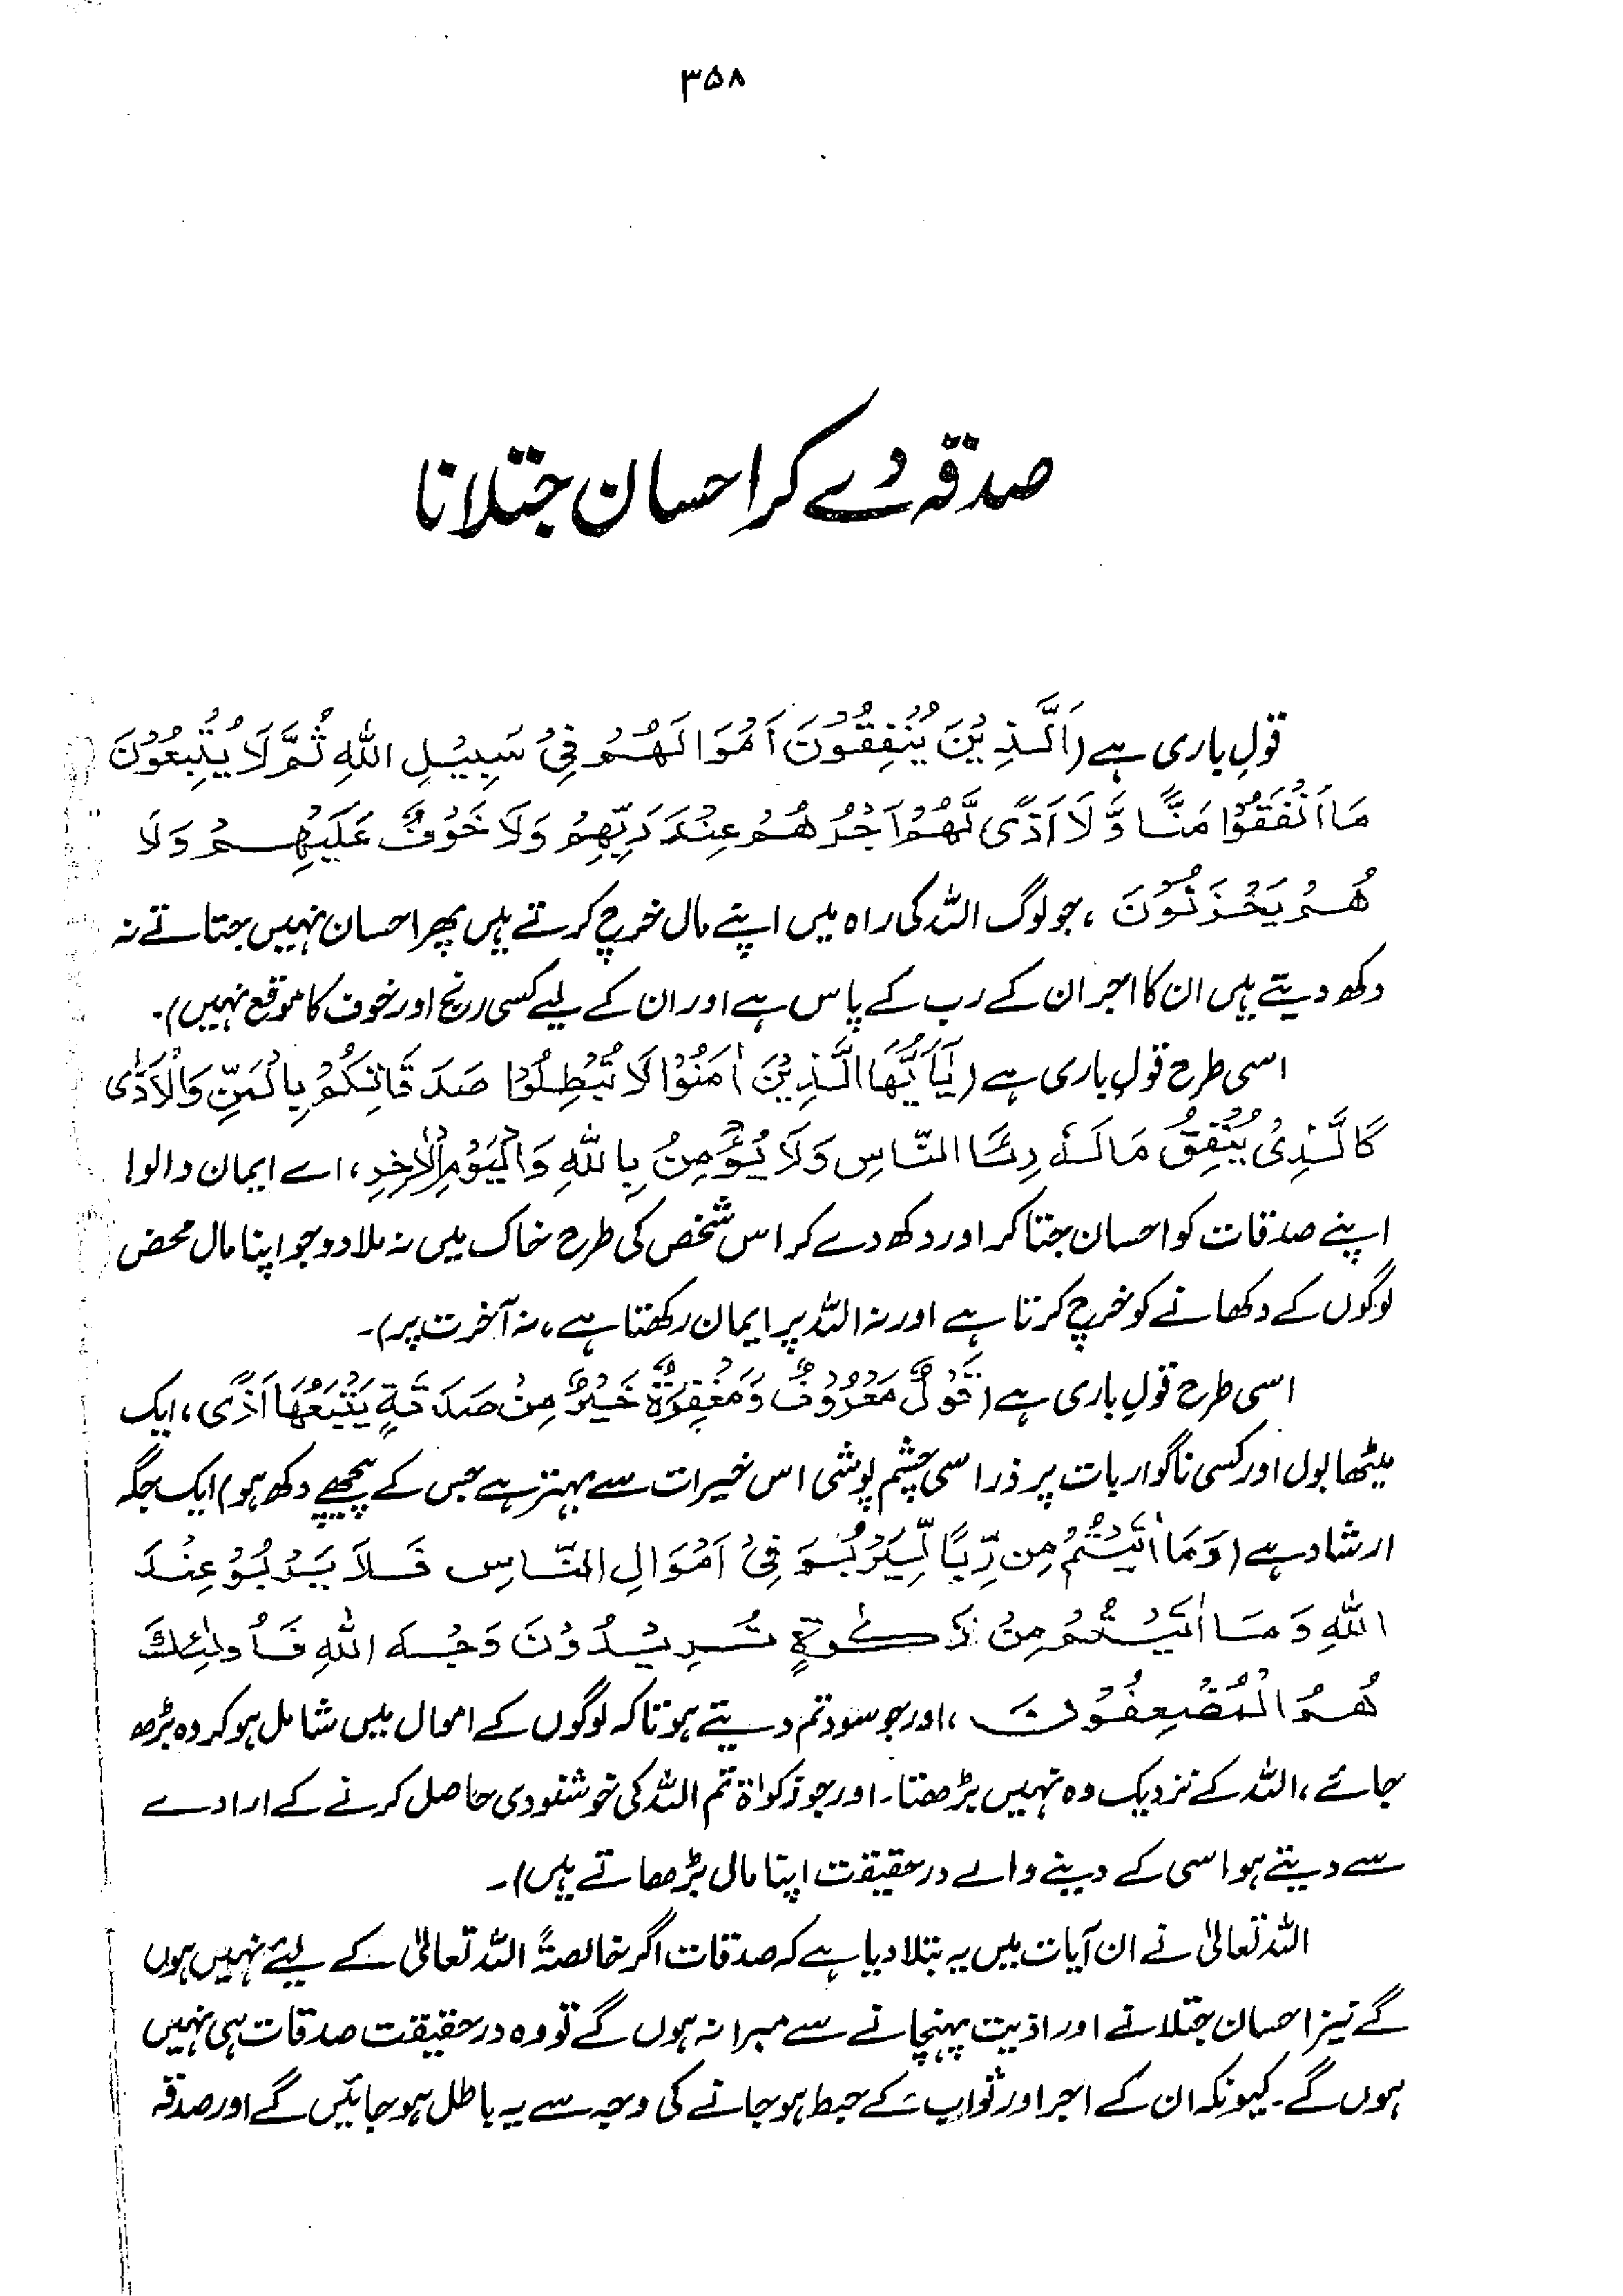 ۳۵۸
صدقہ دے کر احسان جتلانا
قولِ باری ہے (اَلَّذِیْنَ یُنْفِقُوْنَ اَمْوَالَھُمْ فِیْ سَبِیْلِ اللّٰہِ ثُمَّ لَا یُتْبِعُوْنَ
مَا اَنْفَقُوْا مَنًّا وَّ لَا اَذًی لَّھُمْ اَجْرُھُمْ عِنْدَ رَبِّھِمْ وَلَا خَوْفٌ عَلَیْھِمْ وَلَا
ھُمْ یَحْزَنُوْنَ ، جو لوگ اللہ کی راہ میں اپنے مال خرچ کرتے ہیں پھر احسان نہیں جتاتے نہ
دکھ دیتے ہیں ان کا اجر ان کے رب کے پاس ہے اور ان کے لیے کسی رنج اور خوف کا موقع نہیں)۔
اسی طرح قولِ باری ہے (یٰٓاَیُّھَا الَّذِیْنَ اٰمَنُوْا لَا تُبْطِلُوْا صَدَقَاتِکُمْ بِالْمَنِّ وَالْاَذٰی
کَالَّذِیْ یُنْفِقُ مَالَہٗ رِئَآءَ النَّاسِ وَلَا یُؤْمِنُ بِاللّٰہِ وَالْیَوْمِ الْاٰخِرِ، اے ایمان والو!
اپنے صدقات کو احسان جتا کر اور دکھ دے کر اس شخص کی طرح خاک میں نہ ملا دو جو اپنا مال محض
لوگوں کے دکھانے کو خرچ کرتا ہے اور نہ اللہ پر ایمان رکھتا ہے، نہ آخرت پر)۔
اسی طرح قولِ باری ہے (قَوْلٌ مَّعْرُوْفٌ وَّمَغْفِرَۃٌ خَیْرٌ مِّنْ صَدَقَۃٍ یَّتْبَعُھَا اَذًی، ایک
میٹھا بول اور کسی ناگوار بات پر ذرا سی چشم پوشی اس خیرات سے بہتر ہے جس کے پیچھے دکھ ہو) ایک جگہ
ارشاد ہے (وَمَا اٰتَیْتُمْ مِن رِّبًا لِّیَرْبُوَ فِیْ اَمْوَالِ النَّاسِ فَلَا یَرْبُوْ عِنْدَ
اللّٰہِ وَمَا اٰتَیْتُمْ مِنْ زَکٰوۃٍ تُرِیْدُوْنَ وَجْہَ اللّٰہِ فَاُولٰئِکَ
ھُمُ الْمُضْعِفُوْنَ ، اور جو سود تم دیتے ہو تاکہ لوگوں کے اموال میں شامل ہو کر وہ بڑھ
جائے، اللہ کے نزدیک وہ نہیں بڑھتا۔ اور جو زکوٰۃ تم اللہ کی خوشنودی حاصل کرنے کے ارادے
سے دیتے ہو اسی کے دینے والے درحقیقت اپنا مال بڑھاتے ہیں)۔
اللہ تعالیٰ نے ان آیات میں یہ بتلا دیا ہے کہ صدقات اگر خالصۃً اللہ تعالیٰ کے لیئے نہیں ہوں
گے نیز احسان جتلانے اور اذیت پہنچانے سے مبرا نہ ہوں گے تو وہ درحقیقت صدقات ہی نہیں
ہوں گے۔ کیونکہ ان کے اجر اور ثواب کے حبط ہو جانے کی وجہ سے یہ باطل ہو جائیں گے اور صدقہ